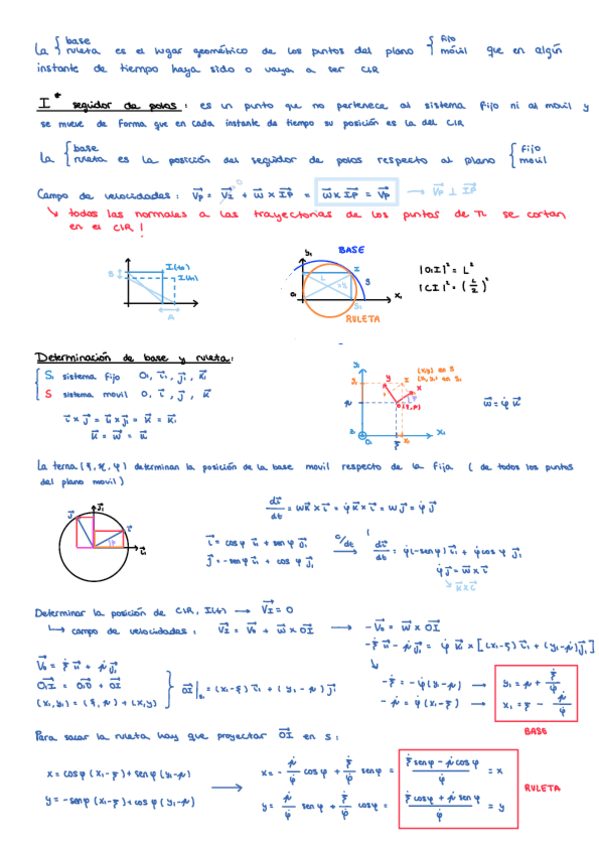 La { base / ruleta es el lugar geométrico de los puntos del plano { fijo / móvil que en algún
instante de tiempo haya sido o vaya a ser CIR
I* seguidor de polos: es un punto que no pertenece al sistema fijo ni al movil y
se mueve de forma que en cada instante de tiempo su posición es la del CIR
La { base / ruleta es la posición del seguidor de polos respecto al plano { fijo / movil
Campo de velocidades: Vp = VI + w x IP = w x IP = Vp → Vp ⊥ IP
↳ todas las normales a las trayectorias de los puntos de π se cortan
en el CIR!
B I(t0) I(t1) A
y1 BASE L I S x1 O1 RULETA
|O1I|² = L²
|CI|² = (L/2)²
Determinación de base y ruleta:
{ S1 sistema fijo O1, i1, j1, k1
S sistema movil O, i, j, k
i x j = i1 x j1 = k = k1
y1 y (x,y) en S
(x1,y1) en S1
I x O(ξ,η) φ η ξ O1 x1
w = φ̇ k
La terna (ξ, η, φ) determinan la posición de la base movil respecto de la fija (de todos los puntos
del plano movil)
j j1 i φ i1
di/dt = wk x i = φ̇ k x i = w j = φ̇ j
i = cos φ i1 + sen φ j1
j = -sen φ i1 + cos φ j1
d/dt → di/dt = φ̇(-sen φ) i1 + φ̇ cos φ j1
φ̇ j = w x i
↳ k x i
Determinar la posición de CIR, I(t) → VI = 0
↳ campo de velocidades: VI = V0 + w x OI → -V0 = w x OI
-ξ̇ i1 - η̇ j1 = φ̇ k1 x [(x1-ξ) i1 + (y1-η) j1]
V0 = ξ̇ i1 + η̇ j1
O1I = O1O + OI
(x1,y1) = (ξ,η) + (x,y)
} OI|S1 = (x1-ξ) i1 + (y1-η) j1
-ξ̇ = -φ̇(y1-η) → y1 = η + ξ̇/φ̇
-η̇ = φ̇(x1-ξ) → x1 = ξ - η̇/φ̇
BASE
Para sacar la ruleta hay que proyectar OI en S:
x = cos φ (x1-ξ) + sen φ (y1-η)
y = -sen φ (x1-ξ) + cos φ (y1-η)
→ x = - η̇/φ̇ cos φ + ξ̇/φ̇ sen φ = (ξ̇ sen φ - η̇ cos φ)/φ̇ = x
y = η̇/φ̇ sen φ + ξ̇/φ̇ cos φ = (ξ̇ cos φ + η̇ sen φ)/φ̇ = y
RULETA